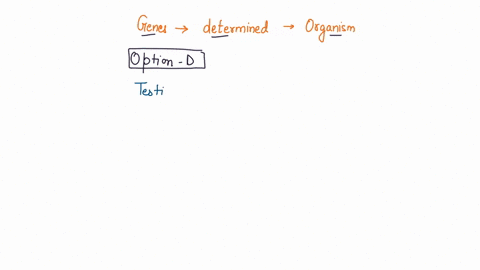 Genes → determined → Organism
Option - D
Testi